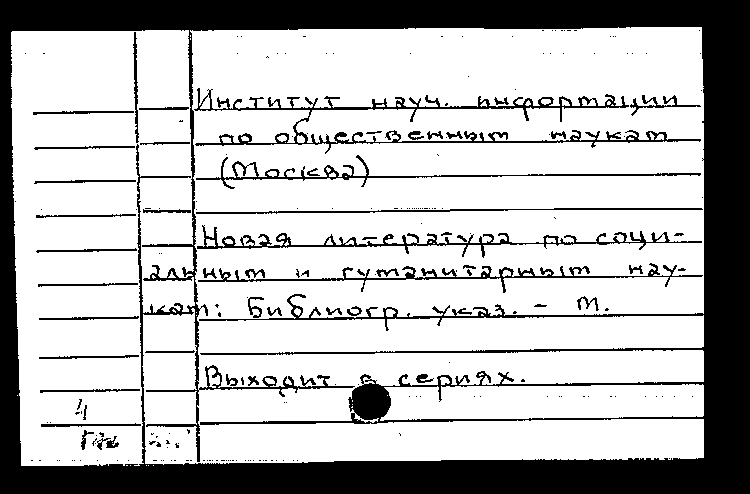 Институт науч. информации
по общественным наукам
(Москва)
Новая литература по соци-
альным и гуманитарным нау-
кам: Библиогр. указ. - М.
Выходит в сериях.
4